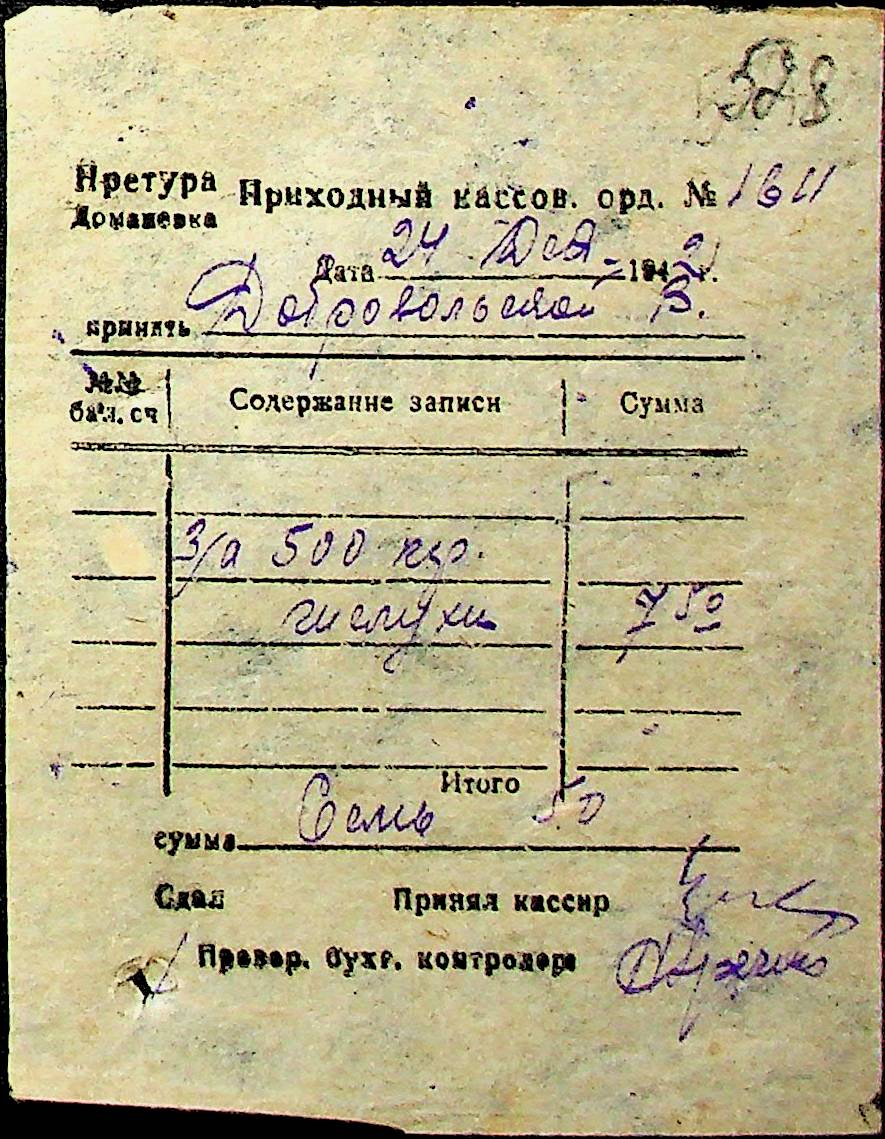 528
Претура Приходный кассов. орд. № 1611
Доманевка
Дата 24 Дек. 1942 г.
принять Добровольской В.
№№ бал. сч Содержание записи Сумма
З/а 500 кгр.
7 50
Итого
сумма Семь 50
Сдал Принял кассир
Провер. бухг. контролера